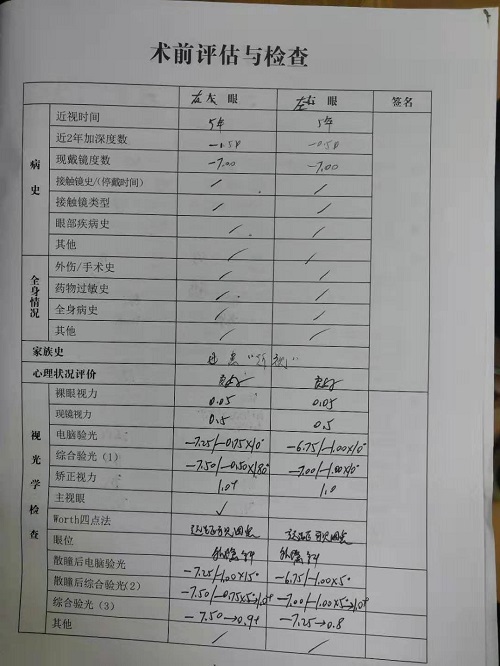 术前评估与检查
眼 眼 签名
病史
近视时间 5年 5年
近2年加深度数 -0.50 -0.50
现戴镜度数 -7.00 -7.00
接触镜史/(停戴时间) / /
接触镜类型 / /
眼部疾病史 / /
其他 / /
全身情况
外伤/手术史 / /
药物过敏史 / /
全身病史 / /
其他 / /
家族史
心理状况评价 良好 良好
视光学检查
裸眼视力 0.05 0.05
现镜视力 0.5 0.5
电脑验光 -7.25/-0.75×10° -6.75/-1.00×10°
综合验光(1) -7.50/-0.50×180° -7.00/-1.00×10°
矫正视力 1.0+ 1.0
主视眼 ✓
Worth四点法
眼位
散瞳后电脑验光 -7.25/-1.00×15° -6.75/-1.00×5°
散瞳后综合验光(2) -7.50/-0.75×5°→1.0+ -7.00/-1.00×5→1.0+
综合验光(3) -7.50→0.9+ -7.25→0.8
其他 / /